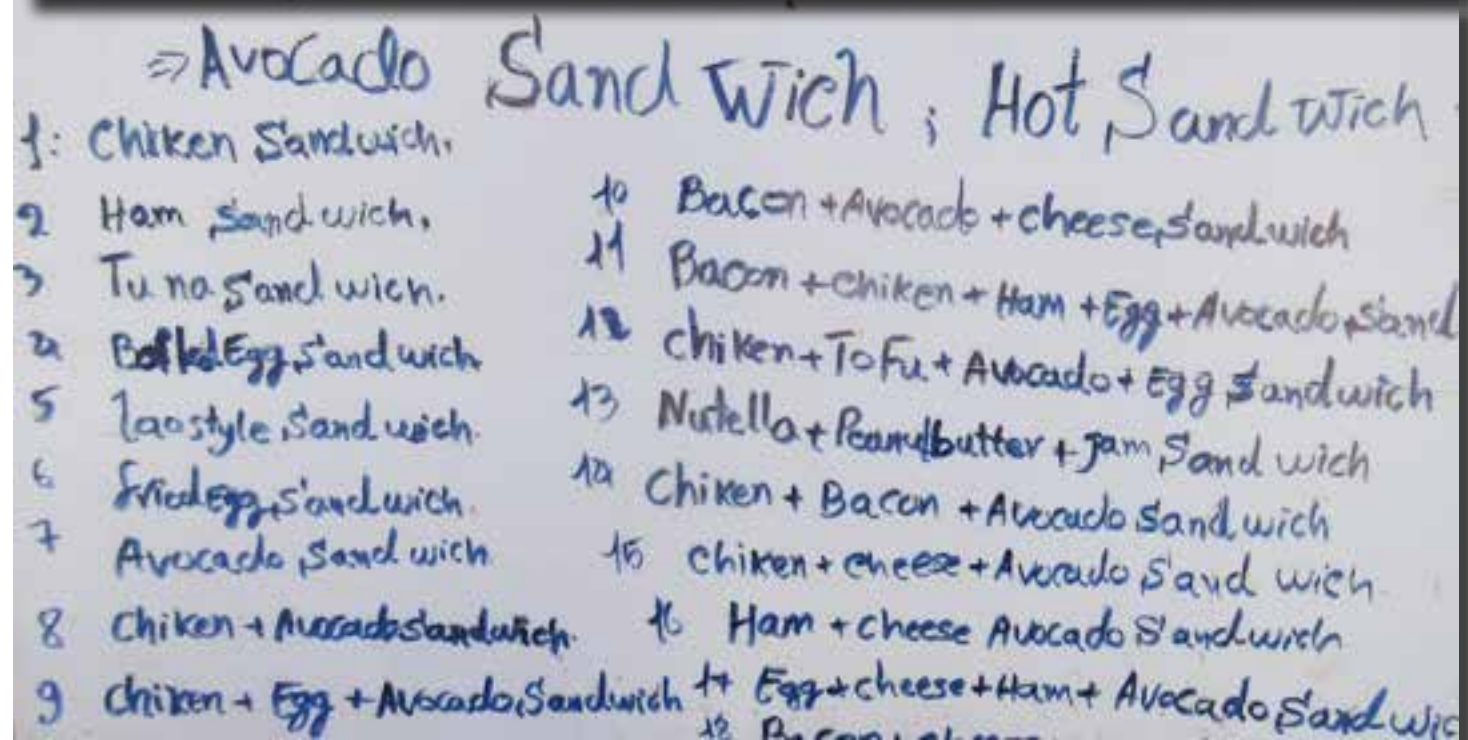 ⇒ Avocado Sand wich ; Hot Sand wich
1: Chiken Sandwich.
2 Ham Sandwich.
3 Tuna Sand wich.
4 Boiled Egg Sand wich
5 laostyle Sand wich.
6 fried Egg Sandwich.
7 Avocado Sand wich
8 Chiken + Avocado Sandwich.
9 Chiken + Egg + Avocado Sandwich
10 Bacon + Avocado + cheese Sandwich
11 Bacon + chiken + Ham + Egg + Avocado Sand
12 chiken + ToFu + Avocado + Egg Sandwich
13 Nutella + Peanutbutter + jam Sand wich
14 Chiken + Bacon + Avocado Sand wich
15 chiken + cheese + Avocado Sand wich
16 Ham + cheese Avocado Sandwich
17 Egg + cheese + Ham + Avocado Sandwic
18 Bacon +